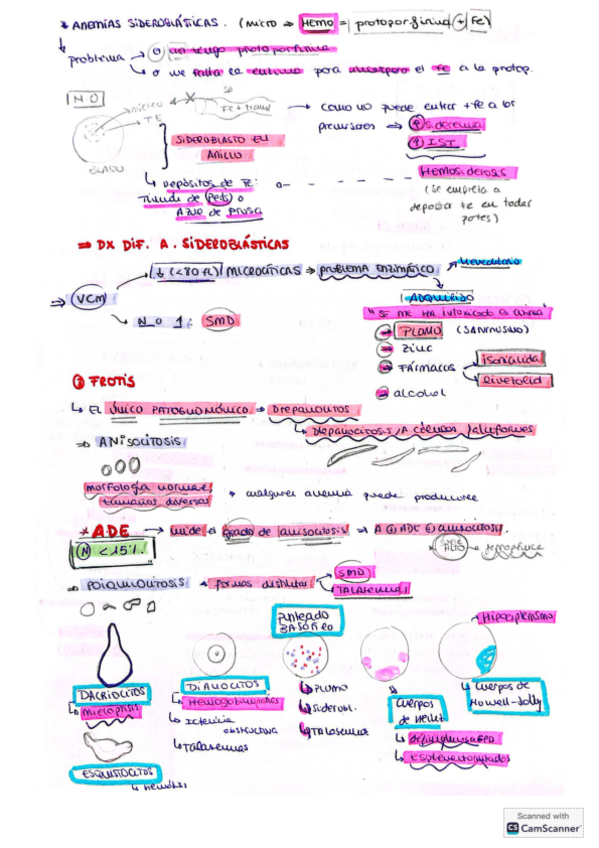 * ANEMIAS SIDEROBLÁSTICAS. (MICRO ⇒ HEMO = protoporfirina + Fe)
problema → ⊖ no tengo protoporfirina
→ o me falta la enzima para incorporar el Fe a la protop.
NO
núcleo
Fe + transf
→ como no puede entrar + Fe a los
precursores ⇒ ↑ sideremia
↑ IST
SIDEROBLASTO EN
ANILLO
Hemosiderosis
(se empieza a
depositar Fe en todas
partes)
↳ Depósitos de Fe:
Tinción de Perls o
Azul de Prusia
⇒ DX DIF. A. SIDEROBLÁSTICAS
⇒ VCM
↓ (<80 fL) MICROCÍTICAS → PROBLEMA ENZIMÁTICO
Hereditario
ADQUIRIDO
N o ↑: SMD
"SE ME HA INTOXICADO LA ENZIMA"
→ PLOMO (SATURNISMO)
→ Zinc
→ FÁRMACOS
isoniazida
linezolid
→ alcohol
② FROTIS
↳ EL ÚNICO PATOGNOMÓNICO → DREPANOCITOS
↳ Drepanocitosis / A. células falciformes
⇒ ANISOCITOSIS
morfología normal
tamaños diversos
* cualquier anemia puede producirse
* ADE → mide el grado de anisocitosis ⇒ A ↑ ADE ↑ anisocitosis.
N <15%
ferropénica
⇒ POIQUILOCITOSIS → formas distintas
SMD
TALASEMIA
DACRIOCITOS
↳ Mieloptisis
ESQUISTOCITOS
↳ hemólisis
DIANOCITOS
↳ Hemoglobinopatías
↳ Ictericia
obstructiva
↳ Talasemias
PUNTEADO
BASÓFILO
↳ Plomo
↳ Siderobl.
↳ Talasemias
CUERPOS
DE HEINZ
↳ Déficit glucosa 6PD
↳ Esplenectomizados
Hipoesplenismo
↳ Cuerpos de
Howell-Jolly
Scanned with
CS CamScanner